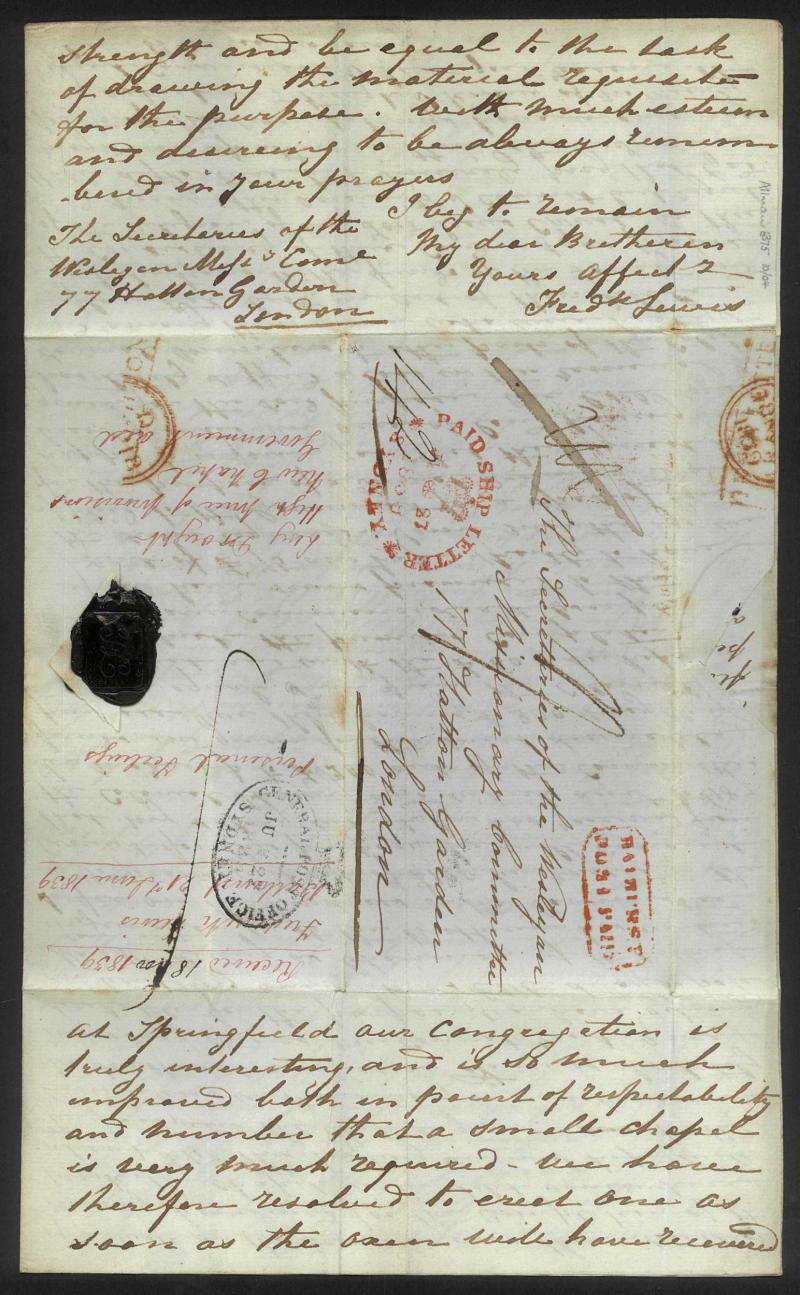 at Springfield our Congregation is
truly interesting, and is so much
improved both in point of respectability
and number that a small chapel
is very much required - we have
therefore resolved to erect one as
soon as the oxen will have recovered
strength and be equal to the task
of drawing the material requisite
for the purpose. With much esteem
and desireing to be always remem
-bered in your prayers
I beg to remain
My dear Bretheren
Yours affect
Fredk Lewis
The Secretaries of the
Wesleyan Missy Come
77 Hatton Garden
London
The Secretaries of the Wesleyan
Missionary Committee
77 Hatton Garden
London
PAID SHIP LETTER
SYDNEY
GENERAL POST OFFICE
SYDNEY
JU
BATHURST
Received 18 Nov 1839
Frederick Lewis
Bathurst 21st June 1839
Personal Feelings
Long Drought
High price of provisions
New Chapel
Government aid